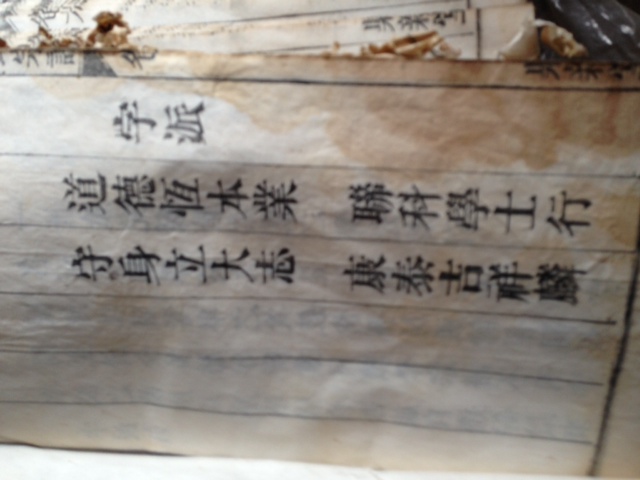 字派
道德恆本業 聯科學士行
守身立大志 康泰吉祥麟